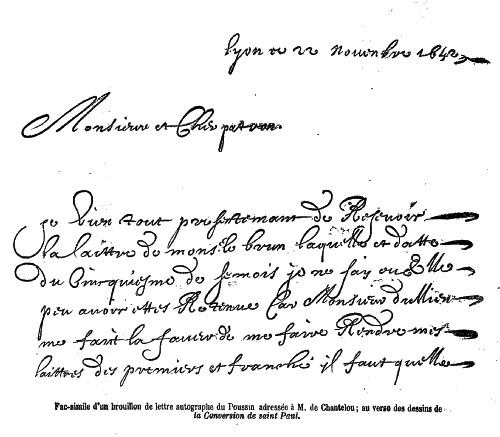 Lyon ce 22 Nouenbre 1642
Monsieur et Cher patron
Je vien tout presentemant de Reseuoir
la laittre de mons.r le brun laquelle et datte
du Cincquiesme de se mois je ne say ou Elle
peu auoir ettes Retenue Car Monsieur du Lieu
me fait la faueur de me faire Rendre mes
laittres des premiers et franche il faut quelle
Fac-simile d'un brouillon de lettre autographe du Poussin adressée à M. de Chantelou; au verso des dessins de
la Conversion de saint Paul.